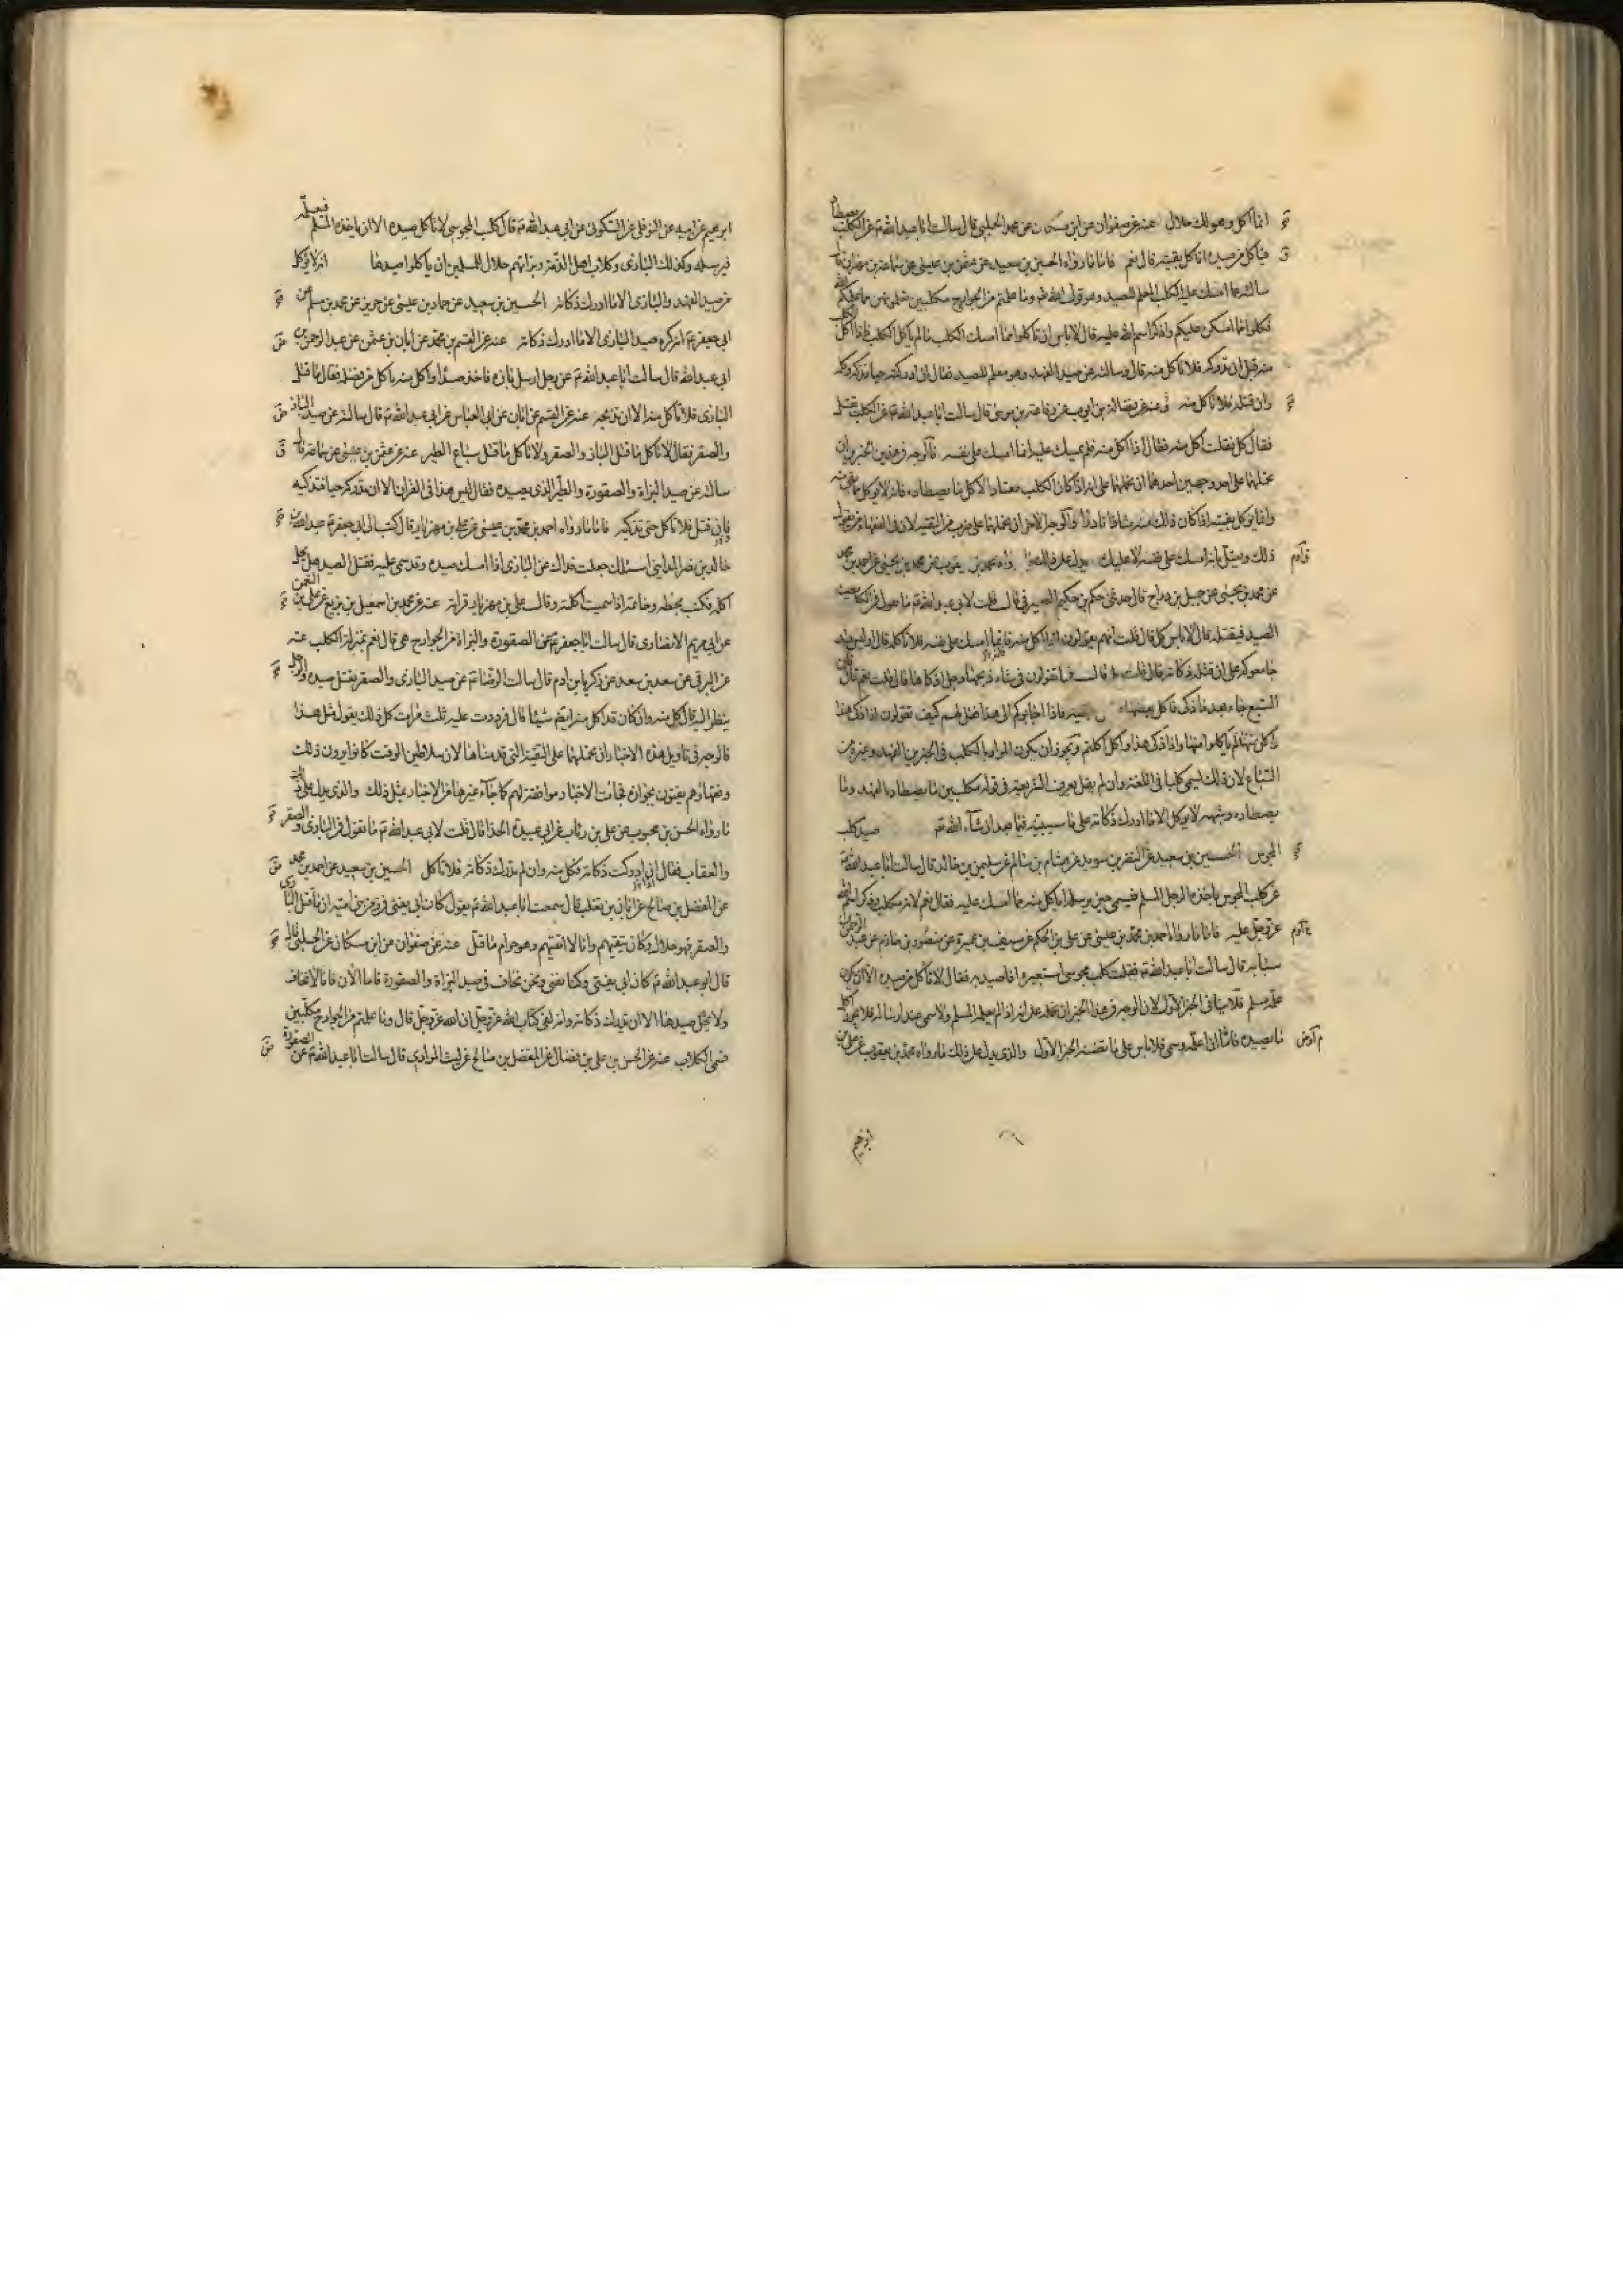 انما اكل وهو لك حلال عنه عن صفوان عن ابن مسكان عن محمد الحلبي قال سالت ابا عبد الله ع عن الكلب يصطاد
فياكل من صيده اناكل بقيته قال نعم فاما ما رواه الحسين بن سعيد عن عثمن بن عيسى عن سماعة بن مهران قال
سالته عما امسك عليه الكلب المعلم للصيد وهو قول الله تع وما علمتم من الجوارح مكلبين تعلمونهن مما علمكم الله
فكلوا مما امسكن عليكم واذكروا اسم الله عليه قال لا باس ان تاكلوا مما امسك الكلب ما لم ياكل الكلب فاذا اكل الكلب
منه قبل ان تدركه فلا تاكل منه قال وسالته عن صيد الفهد وهو معلم للصيد فقال ان ادركته حيا فذكه وكله
وان قتله فلا تاكل منه عنه عن فضالة بن ايوب عن رفاعة بن موسى قال سالت ابا عبد الله ع عن الكلب يقتل
فقال كل فقلت اكل منه فقال اذا اكل منه فلم يمسك عليك انما امسك على نفسه فالوجه في هذين الخبرين ان
نحملهما على احد وجهين احدهما ان نحملهما على انه اذا كان الكلب معتادا لاكل ما يصطاده فانه لا يوكل ما بقى منه
وانما يوكل بقيته اذا كان ذلك منه شاذا نادرا والوجه الاخر ان نحملهما على ضرب من التقية لان في الفقهاء من يقول
ذلك ويعتل بانه امسك على نفسه لا عليك يدل على ذلك ما رواه محمد بن يعقوب عن محمد بن يحيى عن احمد بن محمد
عن محمد بن يحيى عن جميل بن دراج قال حدثنى حكم بن حكيم الصيرفي قال قلت لابي عبد الله ع ما تقول في الكلب يصيد
الصيد فيقتله قال لا باس كل قال قلت انهم يقولون انه اذا اكل منه فانما امسك على نفسه فلا تاكله قال اوليس قد
جامعوكم على ان قتله ذكاته قال قلت بلى قال فما تقولون في شاة ذبحها رجل اذكاها قال قلت نعم قال فان
السبع جاء بعد ما ذكى فاكل بعضها فاذا اجابوكم الى هذا فقل لهم كيف تقولون اذا ذكى هذا
واكل منها لم ياكلوا منها واذا ذكى هذا واكل اكلتم ويجوز ان يكون المراد بالكلب في الخبرين الفهد وغيره من
السباع لان ذلك يسمى كلبا في اللغة وان لم يقل بعرف الشريعة في قوله مكلبين ما يصطاده الفهد وما
يصطاده وشبهه لا يوكل الا ما ادرك ذكاته على ما سنبينه فيما بعد ان شاء الله تع صيد كلب
المجوس الحسين بن سعيد عن النضر بن سويد عن هشام بن سالم عن سليمن بن خالد قال سالت ابا عبد الله ع
عن كلب المجوس ياخذه الرجل المسلم فيسمى حين يرسله اياكل منه مما امسك عليه فقال نعم لانه مكلب وذكر اسم الله
عز وجل عليه فاما ما رواه احمد بن محمد بن عيسى عن علي بن الحكم عن سيف بن عميرة عن منصور بن حازم عن عبد الرحمن بن
سيابة قال سالت ابا عبد الله ع فقلت كلب مجوسى استعيره افاصيد به فقال لا تاكل من صيده الا ان يكون
علمه مسلم فلا ينافى الخبر الاول لان الوجه في هذا الخبر ان نحمله على انه اذا لم يعلمه المسلم ولا سمى عند ارساله فلا يجوز اكل
ما يصيده فاما اذا علمه وسمى فلا باس على ما تضمنه الخبر الاول والذى يدل على ذلك ما رواه محمد بن يعقوب عن علي بن
ابرهيم
ابرهيم عن ابيه عن النوفلى عن السكونى عن ابي عبد الله ع قال كلب المجوسى لا تاكل صيده الا ان ياخذه المسلم فيعلمه
فيرسله وكذلك البازى وكلاب اهل الذمة وبزاتهم حلال للمسلمين ان ياكلوا صيدها انه لا يوكل
من صيد الفهد والبازى الا ما ادرك ذكاته الحسين بن سعيد عن حماد بن عيسى عن حريز عن محمد بن مسلم عن
ابي جعفر ع انه كره صيد البازى الا ما ادرك ذكاته عنه عن القسم بن محمد عن ابان بن عثمن عن عبد الرحمن عن
ابي عبد الله قال سالت ابا عبد الله ع عن رجل ارسل بازه فاخذ صيدا واكل منه ناكل من فضله فقال ما قتل
البازى فلا تاكل منه الا ان تذبحه عنه عن القسم عن ابان عن ابي العباس عن ابي عبد الله ع قال سالته عن صيد الباز
والصقر فقال لا تاكل ما قتل الباز والصقر ولا تاكل ما قتل سباع الطير عنه عن عثمن بن عيسى عن سماعة قال
سالته عن صيد البزاة والصقورة والطير الذى يصيده فقال ليس هذا في القران الا ان تدركه حيا فتذكيه
فان قتل فلا تاكل حتى تذكيه فاما ما رواه احمد بن محمد بن عيسى عن علي بن مهزيار قال كتب الى ابي جعفر ع عبد الله بن
خالد بن نصر المداينى اسئلك جعلت فداك عن البازى اذا امسك صيده وقد سمى عليه فقتل الصيد هل يحل
اكله فكتب بخطه وخاتمه اذا سميت اكلته وقال علي بن مهزيار قراته عنه عن محمد بن اسمعيل بن بزيع عن علي بن النعمن
عن ابي مريم الانصارى قال سالت ابا جعفر ع عن الصقورة والبزاة من الجوارح هى قال نعم بمنزلة الكلب عنه
عن البرقى عن سعد بن سعد عن زكريا بن ادم قال سالت الرضا ع عن صيد البازى والصقر يقتل صيده والرجل
ينظر اليه قال كل منه وان كان قد اكل منه ايضا شيئا قال فرددت عليه ثلث مرات كل ذلك يقول مثل هذا
فالوجه في تاويل هذه الاخبار ان نحملها على التقية التى قدمناها لان سلاطين الوقت كانوا يرون ذلك
وفقهاؤهم يفتون بجوازه فجاءت الاخبار موافقة لهم كما جاء غيرها من الاخبار بمثل ذلك والذى يدل على ذلك
ما رواه الحسن بن محبوب عن علي بن رئاب عن ابي عبيدة الحذا قال قلت لابي عبد الله ع ما تقول في البازى والصقر
والعقاب فقال ان ادركت ذكاته فكل منه وان لم تدرك ذكاته فلا تاكل الحسين بن سعيد عن احمد بن محمد
عن المفضل بن صالح عن ابان بن تغلب قال سمعت ابا عبد الله ع يقول كان ابى يفتى في زمن بنى امية ان ما قتل البازى
والصقر فهو حلال وكان يتقيهم وانا لا اتقيهم وهو حرام ما قتل عنه عن صفوان عن ابن مسكان عن الحلبي قال
قال ابو عبد الله ع كان ابى يفتى وكنا نفتى ونحن نخاف في صيد البزاة والصقورة فاما الان فانا لا نخاف
ولا يحل صيدها الا ان تدرك ذكاته وانه لفى كتاب الله عز وجل ان الله عز وجل قال وما علمتم من الجوارح مكلبين
فمى الكلاب عنه عن الحسن بن علي بن فضال عن المفضل بن صالح عن ليث المرادى قال سالت ابا عبد الله ع عن الصقورة